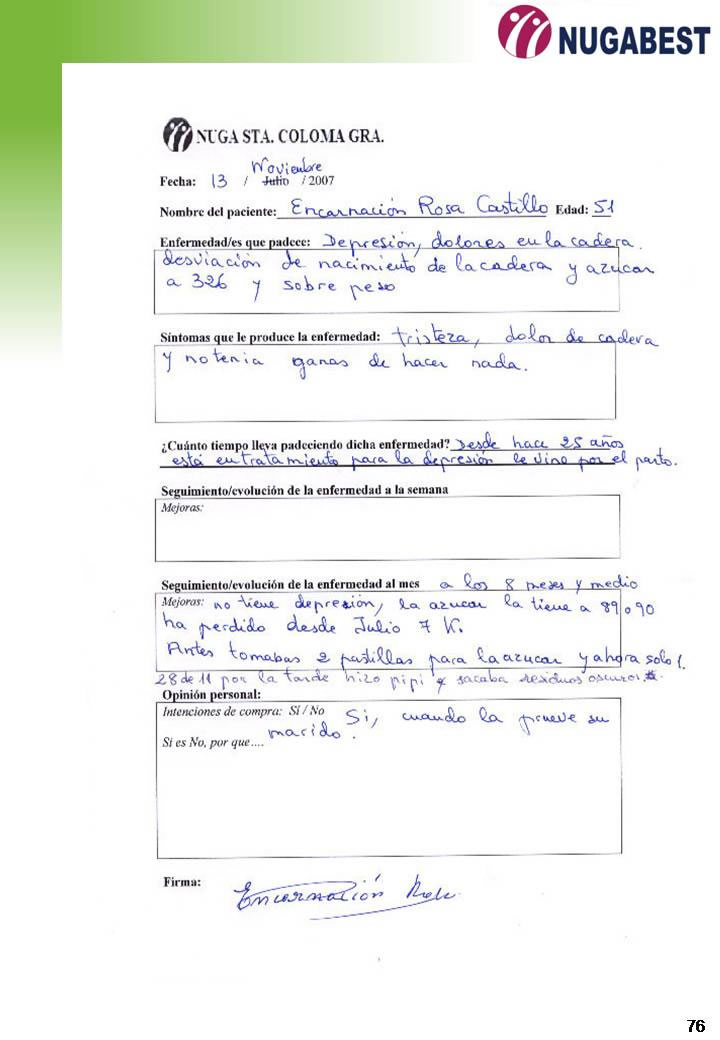 NUGABEST
NUGA STA. COLOMA GRA.
Noviembre
Fecha: 13 / Julio / 2007
Nombre del paciente: Encarnación Rosa Castillo Edad: 51
Enfermedad/es que padece: Depresión, dolores en la cadera.
desviación de nacimiento de la cadera y azucar
a 326 y sobre peso
Síntomas que le produce la enfermedad: tristeza, dolor de cadera
y no tenia ganas de hacer nada.
¿Cuánto tiempo lleva padeciendo dicha enfermedad? Desde hace 25 años
está en tratamiento para la depresión le vino por el parto.
Seguimiento/evolución de la enfermedad a la semana
Mejoras:
Seguimiento/evolución de la enfermedad al mes a los 8 meses y medio
Mejoras: no tiene depresión, la azucar la tiene a 89 o 90
ha perdido desde Julio 7 K.
Antes tomabas 2 pastillas para la azucar y ahora solo 1.
28 de 11 por la tarde hizo pipi y sacaba residuos oscuros
Opinión personal:
Intenciones de compra: Si / No Si, cuando la prueve su
marido.
Si es No, por que....
Firma: Encarnación
76